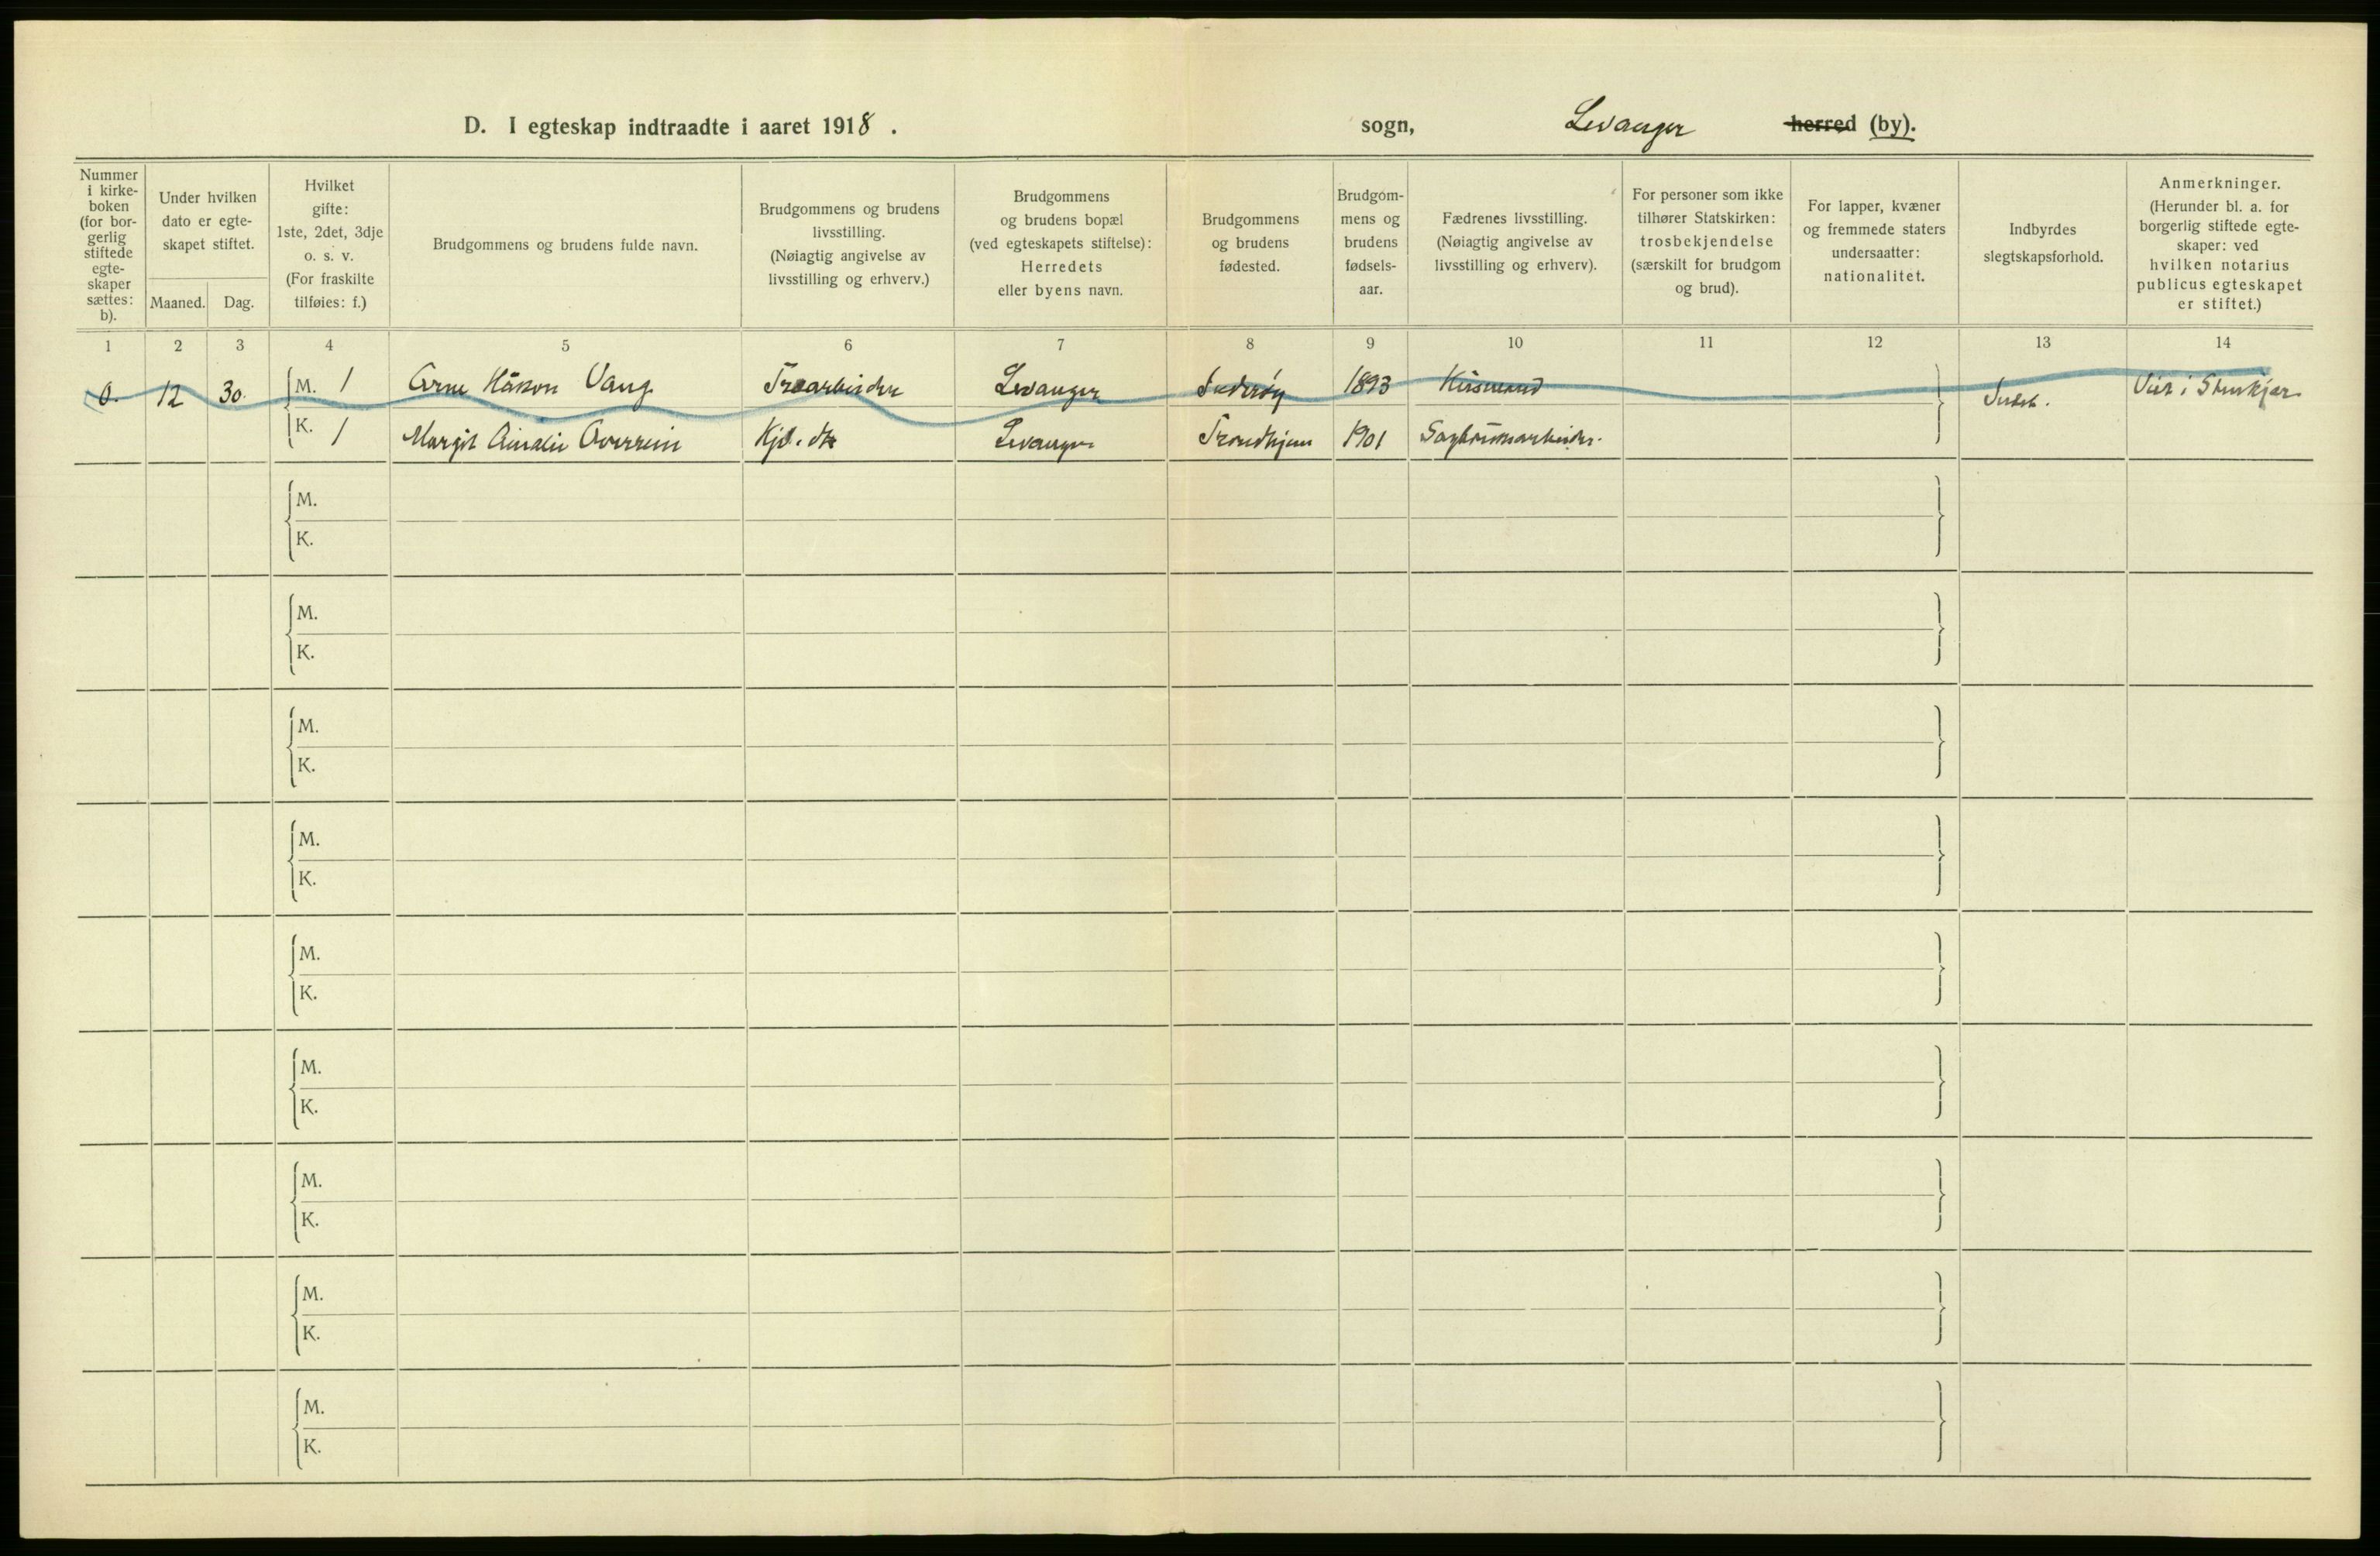 D. I egteskap indtraadte i aaret 1918 .
sogn, Levanger herred (by).
Nummer
i kirke-
boken
(for bor-
gerlig
stiftede
egte-
skaper
sættes:
b).
Under hvilken
dato er egte-
skapet stiftet.
Maaned. Dag.
Hvilket
gifte:
1ste, 2det, 3dje
o. s. v.
(For fraskilte
tilføies: f.)
Brudgommens og brudens fulde navn.
Brudgommens og brudens
livsstilling.
(Nøiagtig angivelse av
livsstilling og erhverv.)
Brudgommens
og brudens bopæl
(ved egteskapets stiftelse):
Herredets
eller byens navn.
Brudgommens
og brudens
fødested.
Brudgom-
mens og
brudens
fødsels-
aar.
Fædrenes livsstilling.
(Nøiagtig angivelse av
livsstilling og erhverv).
For personer som ikke
tilhører Statskirken:
trosbekjendelse
(særskilt for brudgom
og brud).
For lapper, kvæner
og fremmede staters
undersaatter:
nationalitet.
Indbyrdes
slegtskapsforhold.
Anmerkninger.
(Herunder bl. a. for
borgerlig stiftede egte-
skaper: ved
hvilken notarius
publicus egteskapet
er stiftet.)
1 2 3 4 5 6 7 8 9 10 11 12 13 14
0. 12 30. M. 1 Arne Håkon Vang Træarbeider Levanger Inderøy 1893 Husmand Viet i Stenkjær
K. 1 Margit Amalie Overrein Levanger Trondhjem 1901
M.
K.
M.
K.
M.
K.
M.
K.
M.
K.
M.
K.
M.
K.
M.
K.
M.
K.